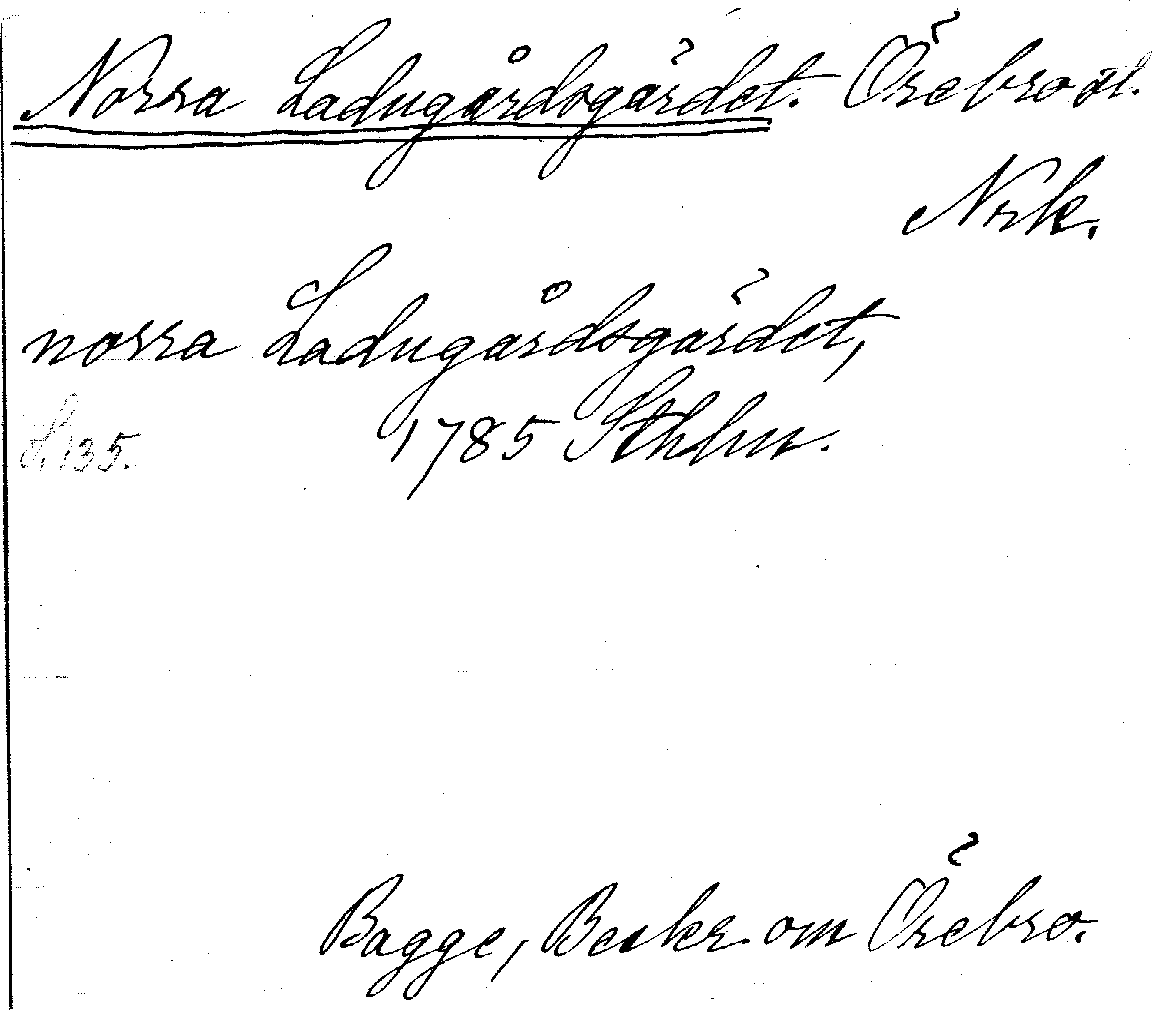 Norra Ladugårdsgärdet. Örebro st.
Nrk.
norra Ladugårdsgärdet,
S. 135. 1785 Sthlm.
Bagge, Beskr. om Örebro.